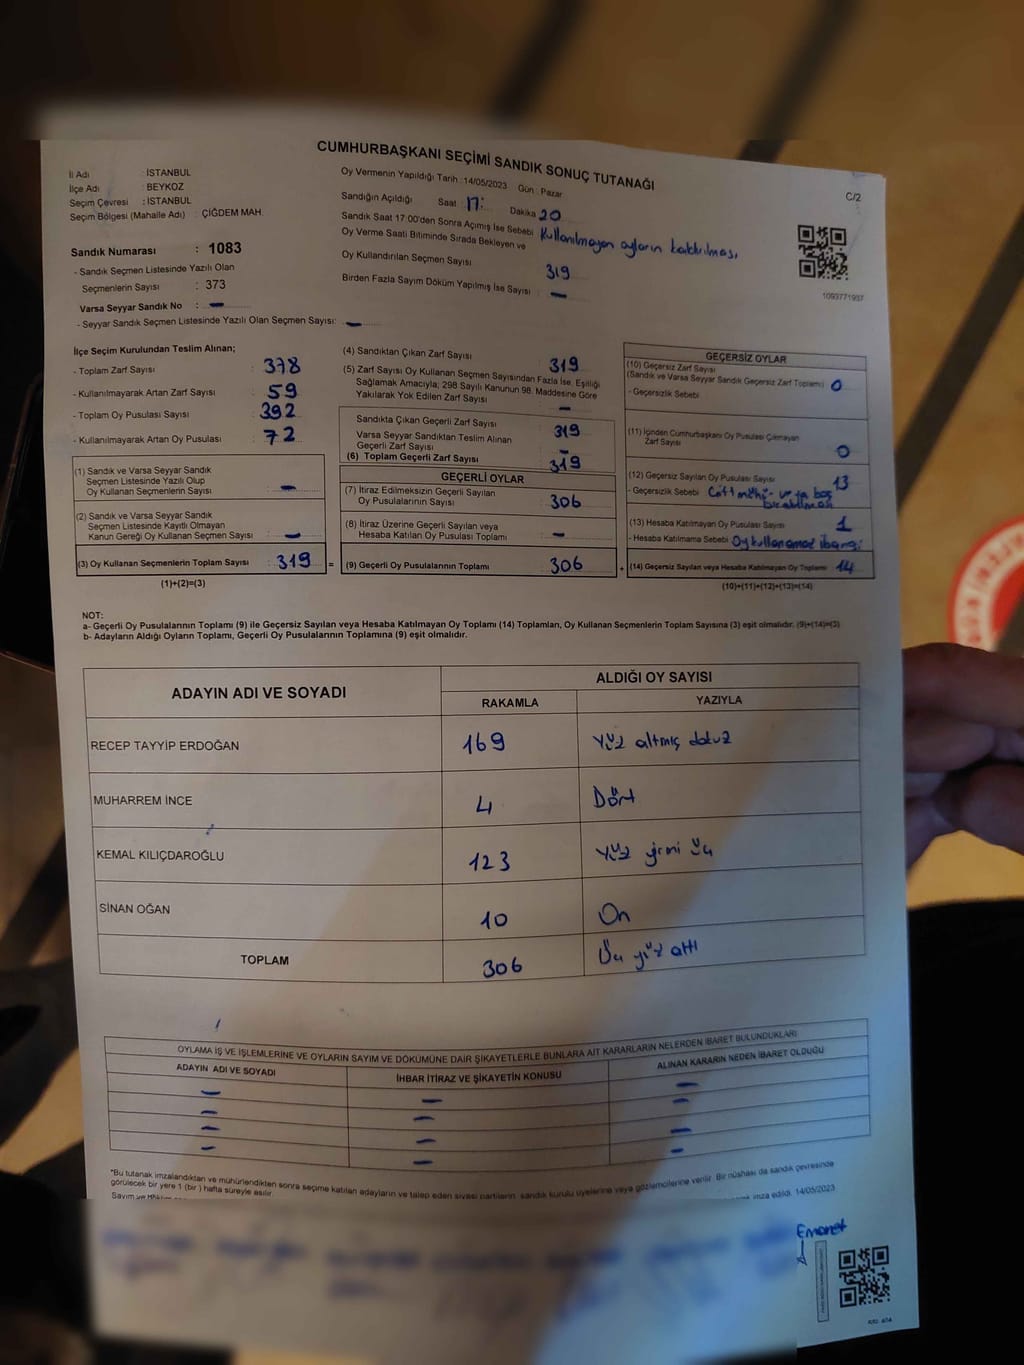 CUMHURBAŞKANI SEÇİMİ SANDIK SONUÇ TUTANAĞI
C/2
İl Adı : İSTANBUL
İlçe Adı : BEYKOZ
Seçim Çevresi : İSTANBUL
Seçim Bölgesi (Mahalle Adı) : ÇİĞDEM MAH.
Sandık Numarası : 1083
- Sandık Seçmen Listesinde Yazılı Olan
Seçmenlerin Sayısı : 373
Varsa Seyyar Sandık No : –
- Seyyar Sandık Seçmen Listesinde Yazılı Olan Seçmen Sayısı: –
Oy Vermenin Yapıldığı Tarih : 14/05/2023 Gün : Pazar
Sandığın Açıldığı Saat 17: Dakika 20
Sandık Saat 17:00'den Sonra Açımış İse Sebebi Kullanılmayan oyların kaldırılması
Oy Verme Saati Bitiminde Sırada Bekleyen ve
Oy Kullandırılan Seçmen Sayısı 319
Birden Fazla Sayım Döküm Yapılmış İse Sayısı : –
1093771937
İlçe Seçim Kurulundan Teslim Alınan;
- Toplam Zarf Sayısı : 378
- Kullanılmayarak Artan Zarf Sayısı : 59
- Toplam Oy Pusulası Sayısı : 392
- Kullanılmayarak Artan Oy Pusulası : 72
(1) Sandık ve Varsa Seyyar Sandık
Seçmen Listesinde Yazılı Olup
Oy Kullanan Seçmenlerin Sayısı : –
(2) Sandık ve Varsa Seyyar Sandık
Seçmen Listesinde Kayıtlı Olmayan
Kanun Gereği Oy Kullanan Seçmen Sayısı : –
(3) Oy Kullanan Seçmenlerin Toplam Sayısı : 319 =
(1)+(2)=(3)
(4) Sandıktan Çıkan Zarf Sayısı : 319
(5) Zarf Sayısı Oy Kullanan Seçmen Sayısından Fazla İse, Eşitliği
Sağlamak Amacıyla; 298 Sayılı Kanunun 98. Maddesine Göre
Yakılarak Yok Edilen Zarf Sayısı : –
Sandıkta Çıkan Geçerli Zarf Sayısı : 319
Varsa Seyyar Sandıktan Teslim Alınan
Geçerli Zarf Sayısı : –
(6) Toplam Geçerli Zarf Sayısı : 319
GEÇERLİ OYLAR
(7) İtiraz Edilmeksizin Geçerli Sayılan
Oy Pusulalarının Sayısı : 306
(8) İtiraz Üzerine Geçerli Sayılan veya
Hesaba Katılan Oy Pusulası Toplamı : –
(9) Geçerli Oy Pusulalarının Toplamı : 306 +
GEÇERSİZ OYLAR
(10) Geçersiz Zarf Sayısı
(Sandık ve Varsa Seyyar Sandık Geçersiz Zarf Toplamı) : 0
- Geçersizlik Sebebi
(11) İçinden Cumhurbaşkanı Oy Pusulası Çıkmayan
Zarf Sayısı : 0
(12) Geçersiz Sayılan Oy Pusulası Sayısı : 13
- Geçersizlik Sebebi Çift mühür veya boş
bırakılması
(13) Hesaba Katılmayan Oy Pusulası Sayısı : 1
- Hesaba Katılmama Sebebi Oy kullanamaz ibaresi
(14) Geçersiz Sayılan veya Hesaba Katılmayan Oy Toplamı : 14
(10)+(11)+(12)+(13)=(14)
NOT:
a- Geçerli Oy Pusulalarının Toplamı (9) ile Geçersiz Sayılan veya Hesaba Katılmayan Oy Toplamı (14) Toplamları, Oy Kullanan Seçmenlerin Toplam Sayısına (3) eşit olmalıdır. (9)+(14)=(3)
b- Adayların Aldığı Oyların Toplamı, Geçerli Oy Pusulalarının Toplamına (9) eşit olmalıdır.
ADAYIN ADI VE SOYADI ALDIĞI OY SAYISI
RAKAMLA YAZIYLA
RECEP TAYYİP ERDOĞAN 169 Yüz altmış dokuz
MUHARREM İNCE 4 Dört
KEMAL KILIÇDAROĞLU 123 Yüz yirmi üç
SİNAN OĞAN 10 On
TOPLAM 306 Üç yüz altı
OYLAMA İŞ VE İŞLEMLERİNE VE OYLARIN SAYIM VE DÖKÜMÜNE DAİR ŞİKAYETLERLE BUNLARA AİT KARARLARIN NELERDEN İBARET BULUNDUKLARI
ADAYIN ADI VE SOYADI İHBAR İTİRAZ VE ŞİKAYETİN KONUSU ALINAN KARARIN NEDEN İBARET OLDUĞU
– – –
– – –
– – –
– – –
*Bu tutanak imzalandıktan ve mühürlendikten sonra seçime katılan adayların ve talep eden siyasi partilerin, sandık kurulu üyelerine veya gözlemcilerine verilir. Bir nüshası da sandık çevresinde
görülecek bir yere 1 (bir) hafta süreyle asılır.
Sayım ve imza edildi. 14/05/2023
Emanet